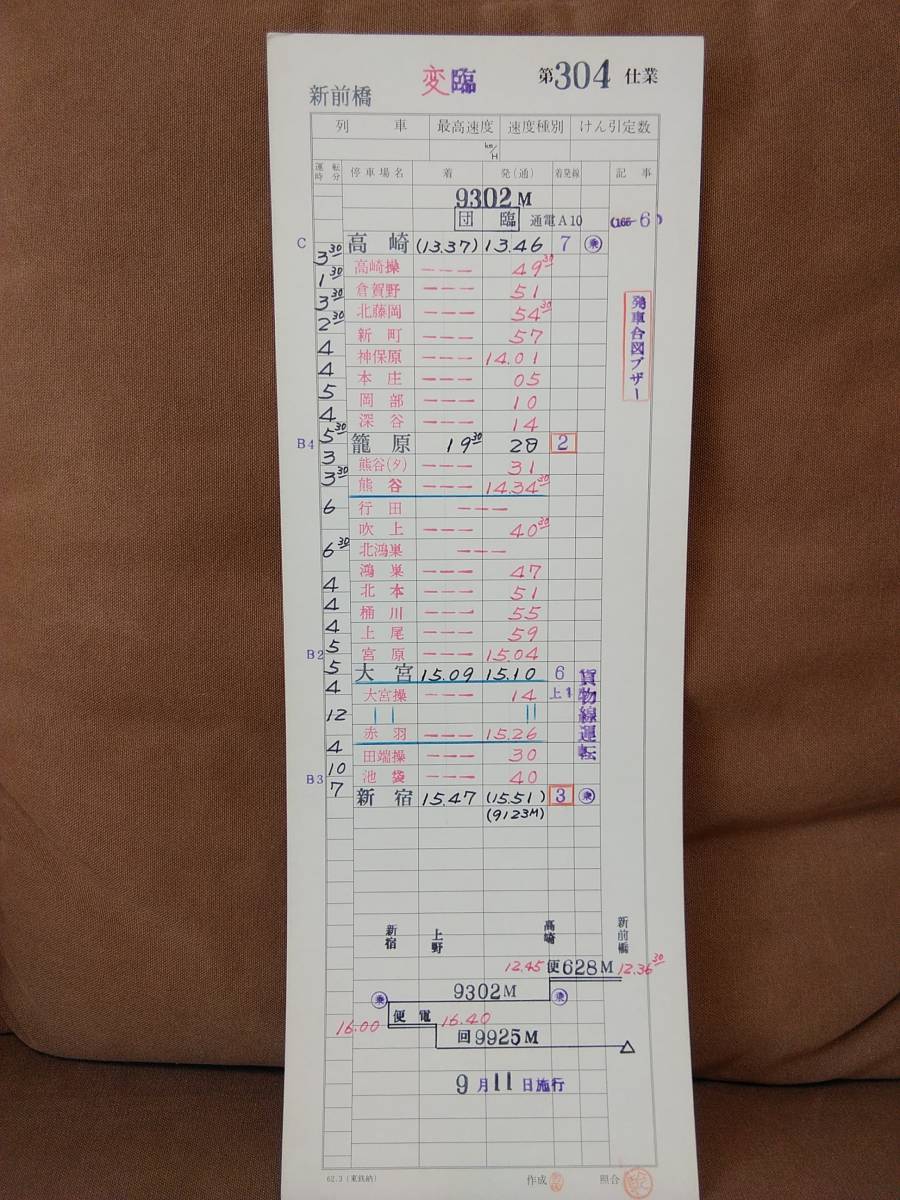 新前橋 変臨 第304仕業
列車 最高速度 速度種別 けん引定数
km/H
運転時分 停車場名 着 発(通) 着発線 記事
9302M
団臨 通電A10 (165-6)
C 高崎 (13.37) 13.46 7 乗
3 30
高崎操 ─── 49 30
1 30
倉賀野 ─── 51
3 30
北藤岡 ─── 54 30
2 30
新町 ─── 57
4
神保原 ─── 14.01
4
本庄 ─── 05
5
岡部 ─── 10
4
深谷 ─── 14
5 30
B4 籠原 19 30 28 2
3
熊谷(タ) ─── 31
3 30
熊谷 ─── 14.34 30
行田 ───
6
吹上 ─── 40 30
北鴻巣 ───
6 30
鴻巣 ─── 47
4
北本 ─── 51
4
桶川 ─── 55
4
上尾 ─── 59
5
B2 宮原 ─── 15.04
5
大宮 15.09 15.10 6
4
大宮操 ─── 14 上1
12
赤羽 ─── 15.26
4
田端操 ─── 30
10
B3 池袋 ─── 40
7
新宿 15.47 (15.51) 3 乗
(9123M)
発車合図ブザー
貨物線運転
新宿 上野 高崎 新前橋
12.45 便628M 12.36 30
乗 9302M 乗
16.00 便電 16.40
回9925M
9月11日施行
62.3 (東鉄納) 作成 照合